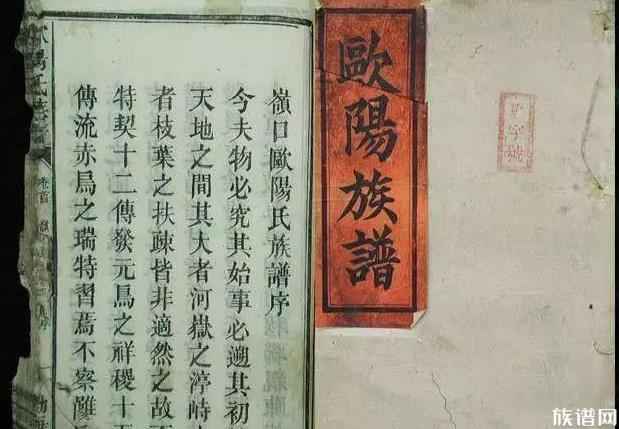 歐陽族譜
甲字號
嶺口歐陽氏族譜序
今夫物必究其始事必遡其初
天地之間其大者河嶽之渟峙
者枝葉之扶疎皆非適然之故
特契十二傳發元鳥之祥稷十
傳流赤烏之瑞特習焉不察雖
卷首
族谱网